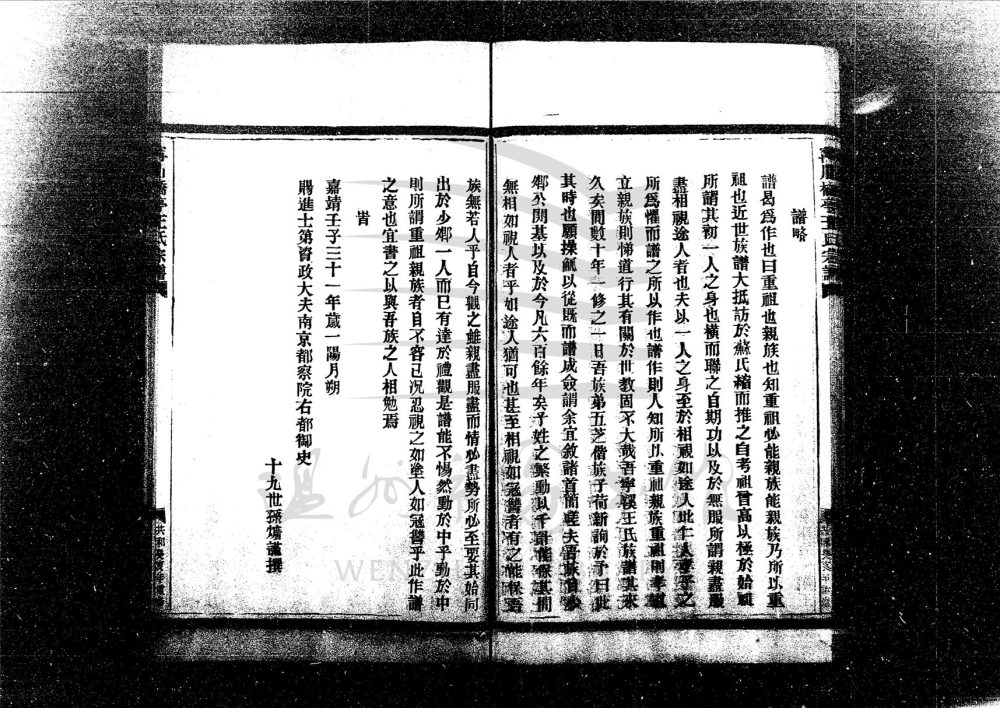 譜略
譜曷爲作也曰重祖也親族也知重祖必能親族能親族乃所以重
祖也近世族譜大抵訪於蘇氏縮而推之自考祖曾高以極於始祖
所謂其初一人之身也橫而聯之自期功以及於無服所謂親盡服
盡相視途人者也夫以一人之身至於相視如途人此仁人孝子之
所爲懼而譜之所以作也譜作則人知所以重祖親族重祖則孝道
立親族則悌道行其有關於世教固不大哉吾寧溪王氏族譜其來
久矣間數十年一修之一日吾族弟五芝偕族子荷新詢於予曰此
其時也願操觚以從既而譜成僉謂余宜敘諸首簡嗟夫吾族自
鄉公開基以及於今凡六百餘年矣子姓之繁動以千計能保其間
無相如視人者乎如途人猶可也甚至相視如寇讐者有之能保吾
族無若人乎自今觀之雖親盡服盡而情必盡勢所必至要其始同
出於少鄉一人而巳有達於禮觀是譜能不惕然動於中乎動於中
則所謂重祖親族者自不容已況忍視之如塗人如寇讐乎此作譜
之意也宜書之以與吾族之人相勉焉
旹
嘉靖壬子三十一年歲一陽月朔
賜進士第資政大夫南京都察院右都御史
十九世孫爌謹撰